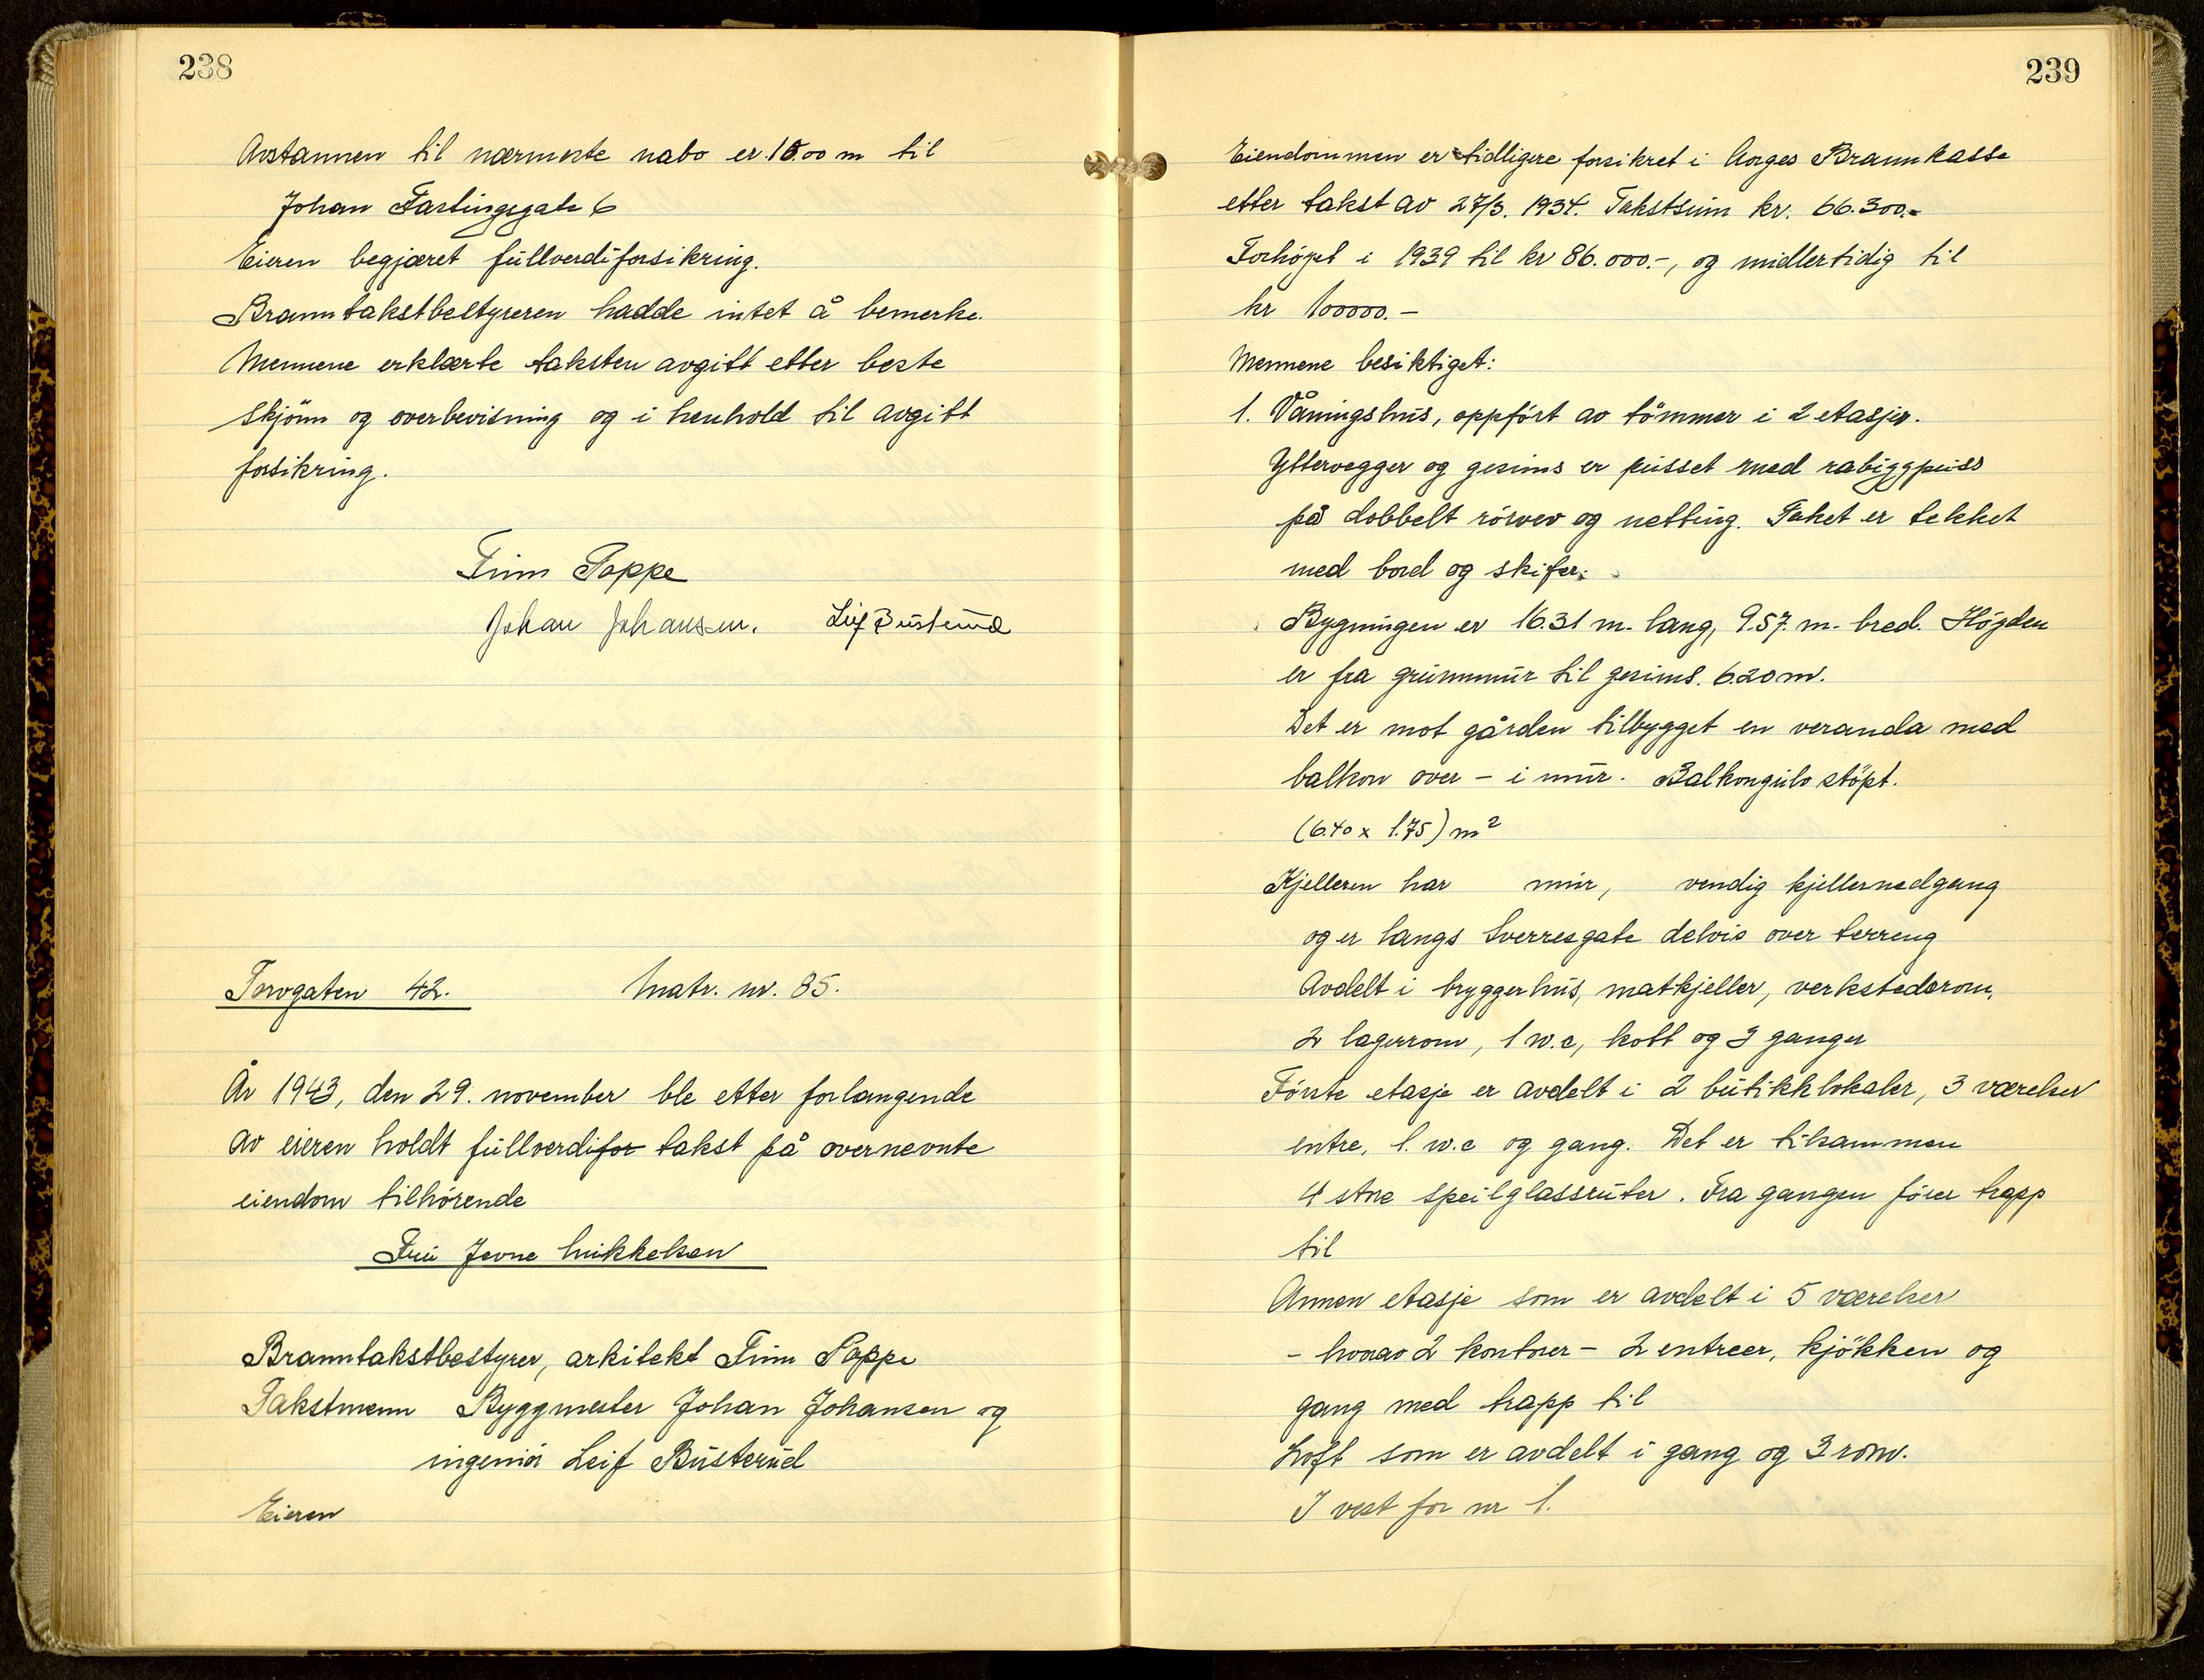 238
Avstannen til nærmeste nabo er 15.00 m til
Johan Fastingsgate 6
Eieren begjæret fullverdiforsikring.
Branntakstbestyreren hadde intet å bemerke.
Mennene erklærte taksten avgitt etter beste
skjönn og overbevisning og i henhold til avgitt
forsikring.
Finn Poppe
Johan Johansen. Leif Busterud
Torvgaten 42. Matr. nr. 85.
År 1943, den 29. november ble etter forlangende
av eieren holdt fullverdifor takst på overnevnte
eiendom tilhörende
Fru Jevne Mikkelsen
Branntakstbestyrer, arkitekt Finn Poppe
Takstmenn Byggmester Johan Johansen og
ingeniör Leif Busterud
Eieren
239
Eiendommen er tidligere forsikret i Norges Brannkasse
etter takst av 27/3. 1934. Takstsum kr. 66.300.-
Forhöyet i 1939 til kr 86.000.-, og midlertidig til
kr 100000.-
Mennene besiktiget:
1. Våningshus, oppfört av tömmer i 2 etasjer.
Yttervegger og gesims er pusset med rabiggpuss
på dobbelt rörvev og netting. Taket er tekket
med bord og skifer.
Bygningen er 16.31 m. lang, 9.57. m. bred. Höyden
er fra grunnmur til gesims. 6.20 m.
Det er mot gården tilbygget en veranda med
balkon over - i mur. Balkongulv stöpt.
(6.40 x 1.75) m²
Kjelleren har mur, vendig kjellernedgang
og er langs Sverresgate delvis over terreng
Avdelt i bryggerhus, matkjeller, verkstedsrom,
2 lagerrom, 1 w.c, kott og 3 ganger
Förste etasje er avdelt i 2 butikklokaler, 3 værelser
entre, 1. w.c og gang. Det er tilsammen
4 store speilglassruter. Fra gangen förer trapp
til
Annen etasje som er avdelt i 5 værelser
- hvorav 2 kontorer - 2 entreer, kjökken og
gang med trapp til
Loft som er avdelt i gang og 3 rom.
I vest for nr 1.